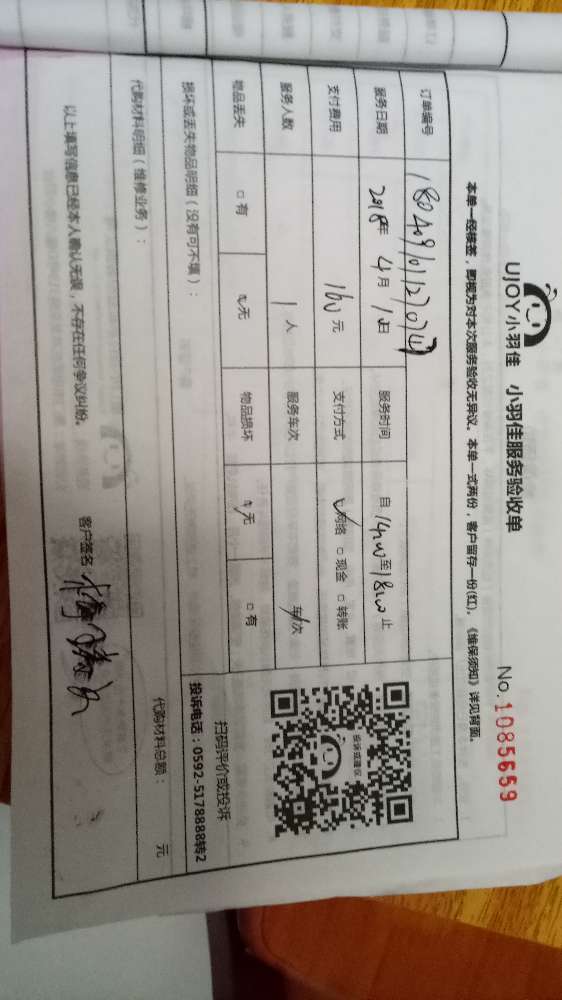 UJOY小羽佳 小羽佳服务验收单
No.1085659
本单一经核签，即视为对本次服务验收无异议。本单一式两份，客户留存一份(红)，《维保须知》详见背面。
订单编号
服务日期 2018年 4月 日 服务时间 自 至 止
支付费用 160元 支付方式 网络 □ 现金 □ 转账
服务人数 1人 服务车次 车/次
物品丢失 □ 有 无 物品损坏 无 □ 有
投诉或建议
损坏或丢失物品明细（没有可不填）：
扫码评价或投诉
投诉电话：0592-5178888转2
代购材料明细（维修业务）：
代购材料总额： 元
以上填写信息已经本人确认无误，不存在任何争议纠纷。 客户签名：